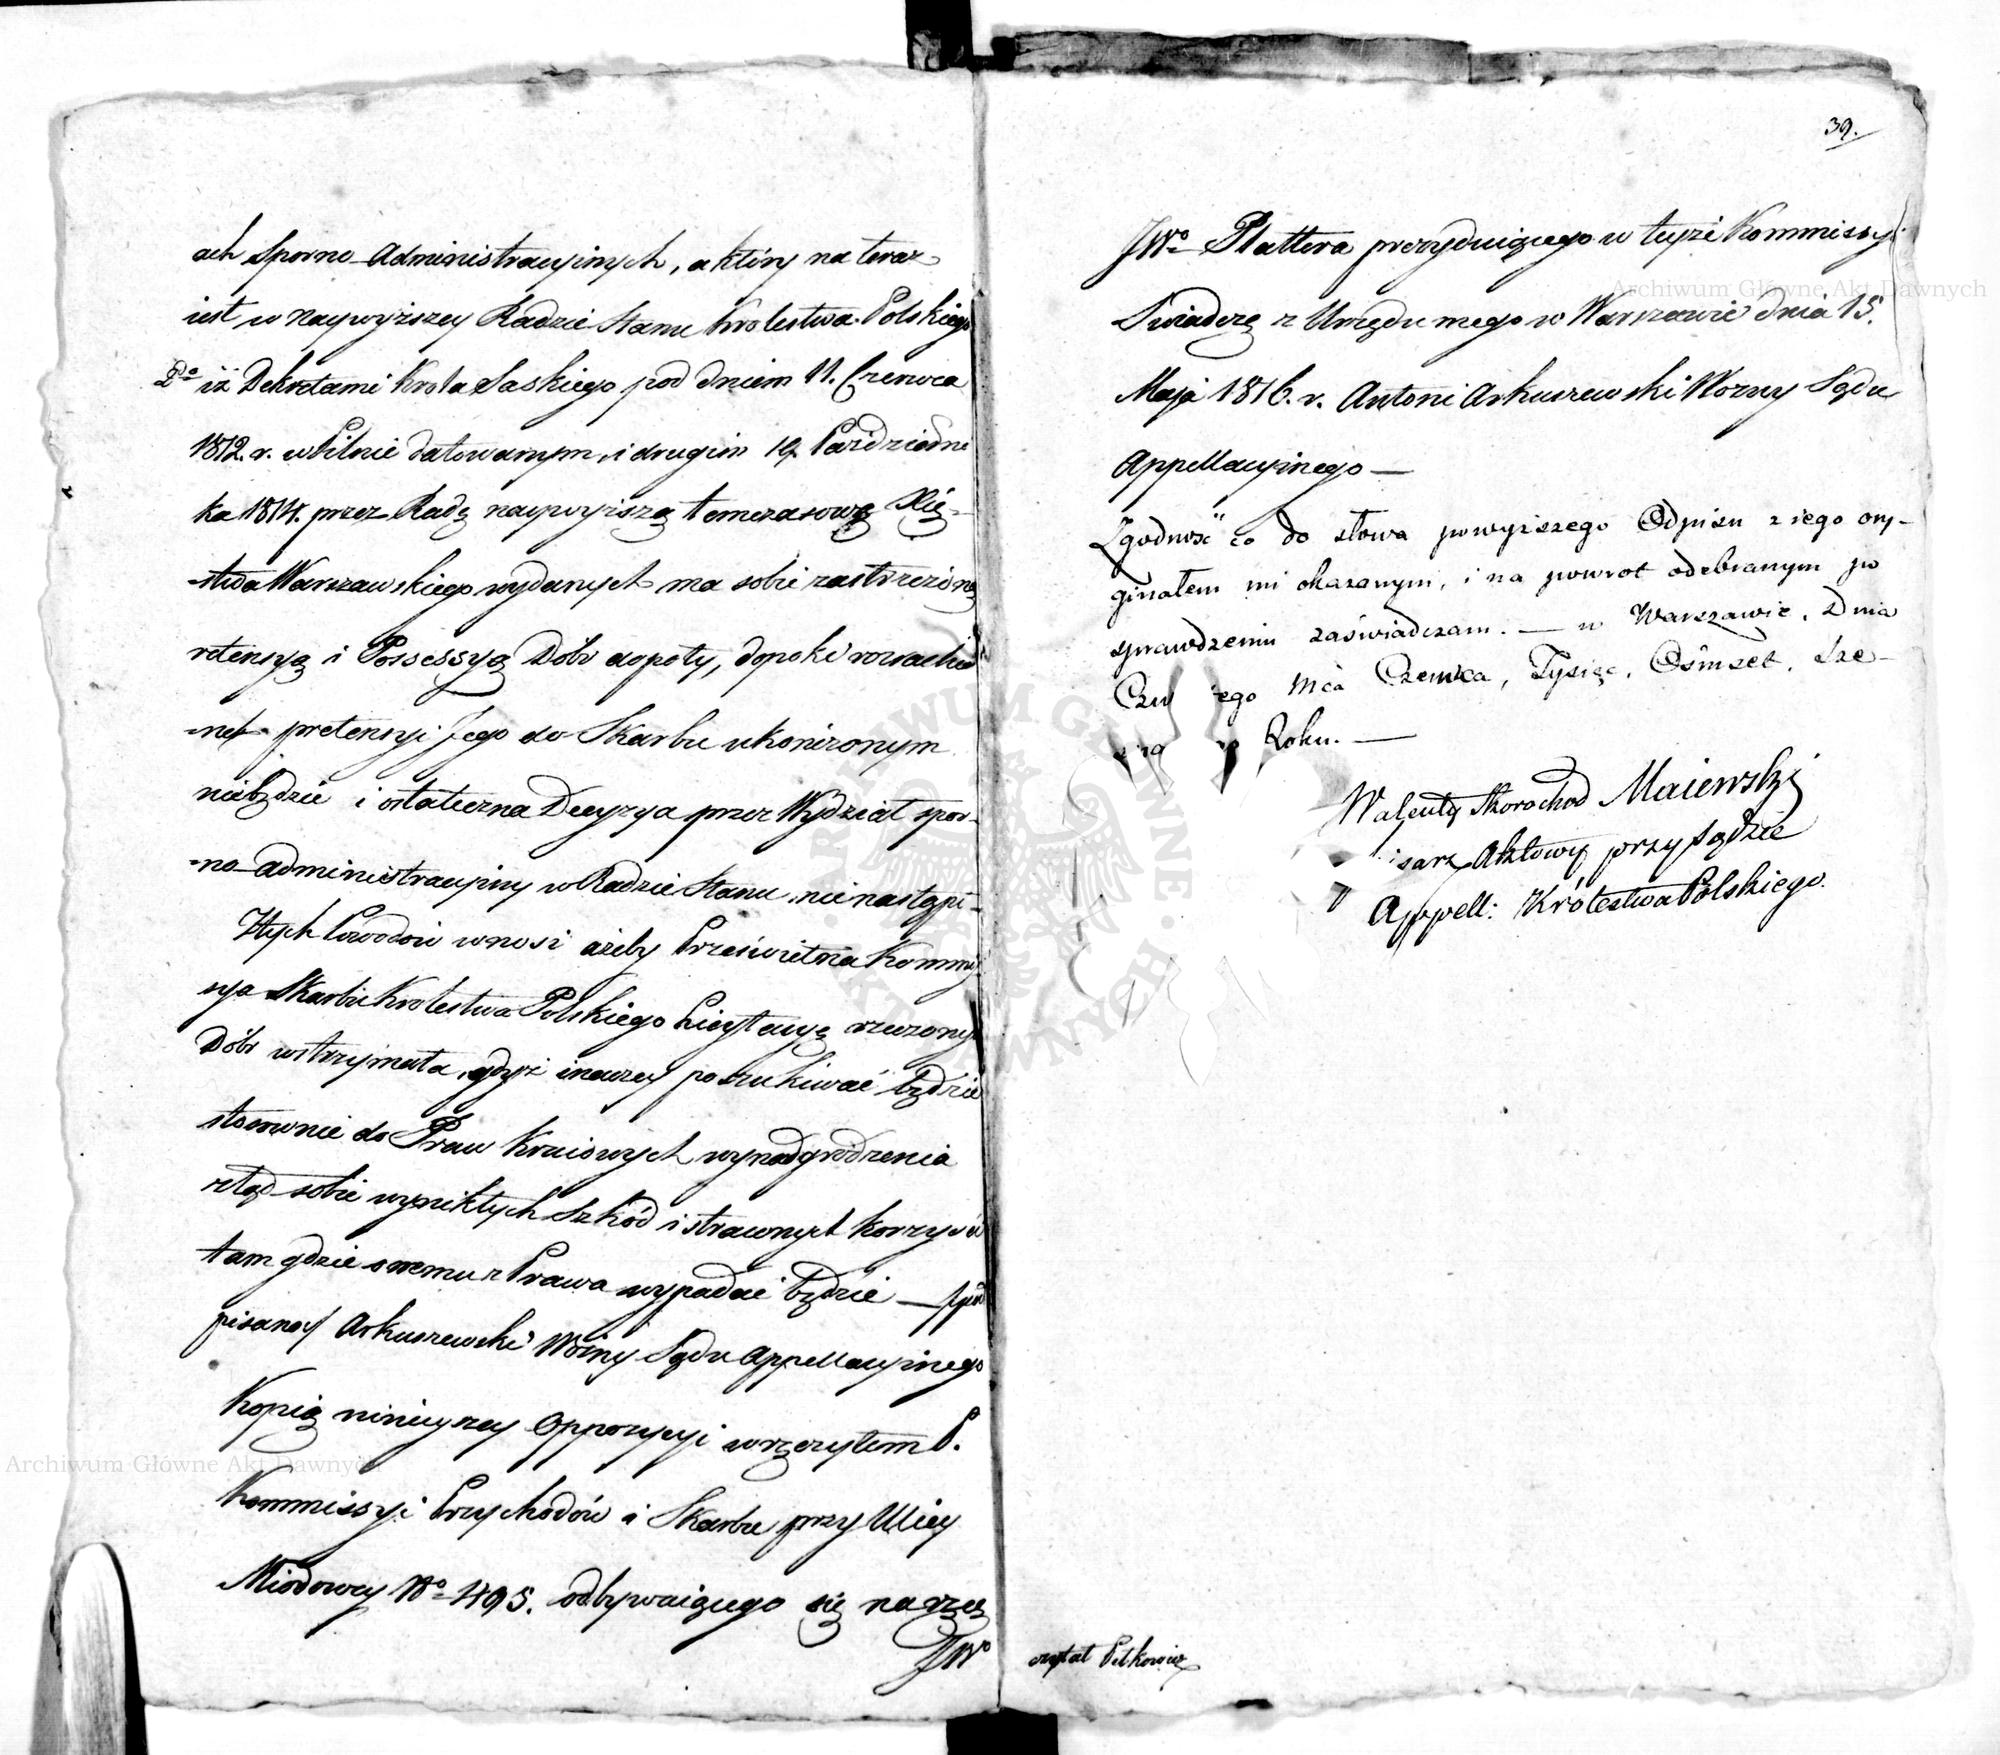 ach Sporno-Administracyinych, a który na teraz
iest w naywyższey Radzie Stanu Krolestwa Polskiego
2do iż Dekretami Krola Saskiego pod dniem 11. Czerwca
1812. r. w Pilnie datowanym, i drugim 19. Październi
ka 1814. przez Radę naywyiszą temczasową Xię-
-stwa Warszawskiego wydanych ma sobie zastrzeżoną
retensyą i Possessyą Dóbr dopoty, dopoki rozrachu
-nek pretensyi Jego do Skarbu ukonizonym
niebędzie i ostateczna Decyzya przez Wydział spor-
-no-administracyiny w Radzie Stanu nie nastąpi-
Ztych Powodów wnosi ażeby Prześwietna Kommis
sya Skarbu Krolestwa Polskiego Licytacyą rzeczonych
Dóbr wstrzymała, gdyż inaczey poszukiwać będzie
stosownie do Praw Kraiowych wynadgrodzenia
ztąd sobie wynikłych szkód i straconych korzyści
tam gdzie onemu z Prawa wypadać będzie — /pod
pisano/ Arkuszewski Woźny Sądu Appellacyinego
Kopią ninieyszey Oppozycyi wręczyłem P.
Kommissyi Przychodów i Skarbu przy Ulicy
Miodowey No 495. odbywaiącego się na ręce
JWo
39.
JWo Plattera prezyduiącego w teyże Kommissyi
Swiadczę z Urzędu mego w Warszawie dnia 15.
Maja 1816. r. Antoni Arkuszewski Wozny Sądu
Appellacyinego —
Zgodność co do słowa powyższego Odpisu z iego ory-
ginałem mi okazanym, i na powrot odebranym po
sprawdzeniu zaświadczam. — w Warszawie, Dnia
Czw iego Mca Czerwca, Tysiąc, Ośmset, Sze-
Roku. —
Walenty Skorochod Maiewski
isarz Aktowy przy Sądzie
Appell: Królestwa Polskiego.
czytał Petkowicz
Archiwum Główne Akt Dawnych
Archiwum Główne Akt Dawnych
ARCHIWUM GŁÓWNE AKT DAWNYCH